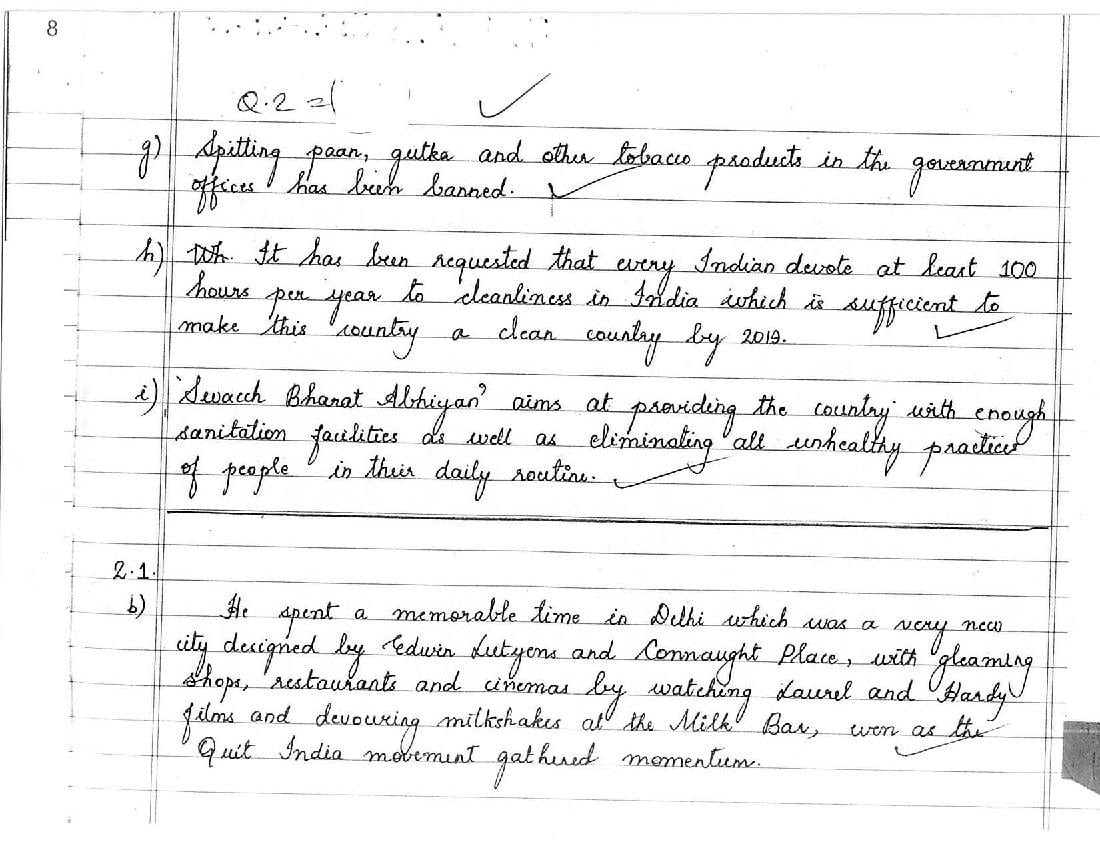 8
Q.2 =(
g) Spitting paan, gutka and other tobacco products in the government
offices has been banned.
h) Wh. It has been requested that every Indian devote at least 100
hours per year to cleanliness in India which is sufficient to
make this country a clean country by 2019.
i) 'Swacch Bharat Abhiyan' aims at providing the country with enough
sanitation facilities as well as eliminating all unhealthy practices
of people in their daily routine.
2.1.
b) He spent a memorable time in Delhi which was a very new
city designed by Edwin Lutyens and Connaught Place, with gleaming
shops, restaurants and cinemas by watching Laurel and Hardy
films and devouring milkshakes at the Milk Bar, even as the
Quit India movement gathered momentum.